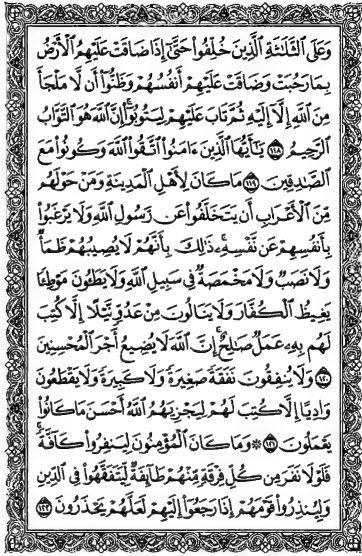 وَعَلَى ٱلثَّلَـٰثَةِ ٱلَّذِينَ خُلِّفُوا۟ حَتَّىٰٓ إِذَا ضَاقَتْ عَلَيْهِمُ ٱلْأَرْضُ
بِمَا رَحُبَتْ وَضَاقَتْ عَلَيْهِمْ أَنفُسُهُمْ وَظَنُّوٓا۟ أَن لَّا مَلْجَأَ
مِنَ ٱللَّهِ إِلَّآ إِلَيْهِ ثُمَّ تَابَ عَلَيْهِمْ لِيَتُوبُوٓا۟ ۚ إِنَّ ٱللَّهَ هُوَ ٱلتَّوَّابُ
ٱلرَّحِيمُ ١١٨ يَـٰٓأَيُّهَا ٱلَّذِينَ ءَامَنُوا۟ ٱتَّقُوا۟ ٱللَّهَ وَكُونُوا۟ مَعَ
ٱلصَّـٰدِقِينَ ١١٩ مَا كَانَ لِأَهْلِ ٱلْمَدِينَةِ وَمَنْ حَوْلَهُم
مِّنَ ٱلْأَعْرَابِ أَن يَتَخَلَّفُوا۟ عَن رَّسُولِ ٱللَّهِ وَلَا يَرْغَبُوا۟
بِأَنفُسِهِمْ عَن نَّفْسِهِۦ ۚ ذَٰلِكَ بِأَنَّهُمْ لَا يُصِيبُهُمْ ظَمَأٌ
وَلَا نَصَبٌ وَلَا مَخْمَصَةٌ فِى سَبِيلِ ٱللَّهِ وَلَا يَطَـُٔونَ مَوْطِئًا
يَغِيظُ ٱلْكُفَّارَ وَلَا يَنَالُونَ مِنْ عَدُوٍّ نَّيْلًا إِلَّا كُتِبَ
لَهُم بِهِۦ عَمَلٌ صَـٰلِحٌ ۚ إِنَّ ٱللَّهَ لَا يُضِيعُ أَجْرَ ٱلْمُحْسِنِينَ
١٢٠ وَلَا يُنفِقُونَ نَفَقَةً صَغِيرَةً وَلَا كَبِيرَةً وَلَا يَقْطَعُونَ
وَادِيًا إِلَّا كُتِبَ لَهُمْ لِيَجْزِيَهُمُ ٱللَّهُ أَحْسَنَ مَا كَانُوا۟
يَعْمَلُونَ ١٢١ ۞ وَمَا كَانَ ٱلْمُؤْمِنُونَ لِيَنفِرُوا۟ كَآفَّةً ۚ
فَلَوْلَا نَفَرَ مِن كُلِّ فِرْقَةٍ مِّنْهُمْ طَآئِفَةٌ لِّيَتَفَقَّهُوا۟ فِى ٱلدِّينِ
وَلِيُنذِرُوا۟ قَوْمَهُمْ إِذَا رَجَعُوٓا۟ إِلَيْهِمْ لَعَلَّهُمْ يَحْذَرُونَ ١٢٢